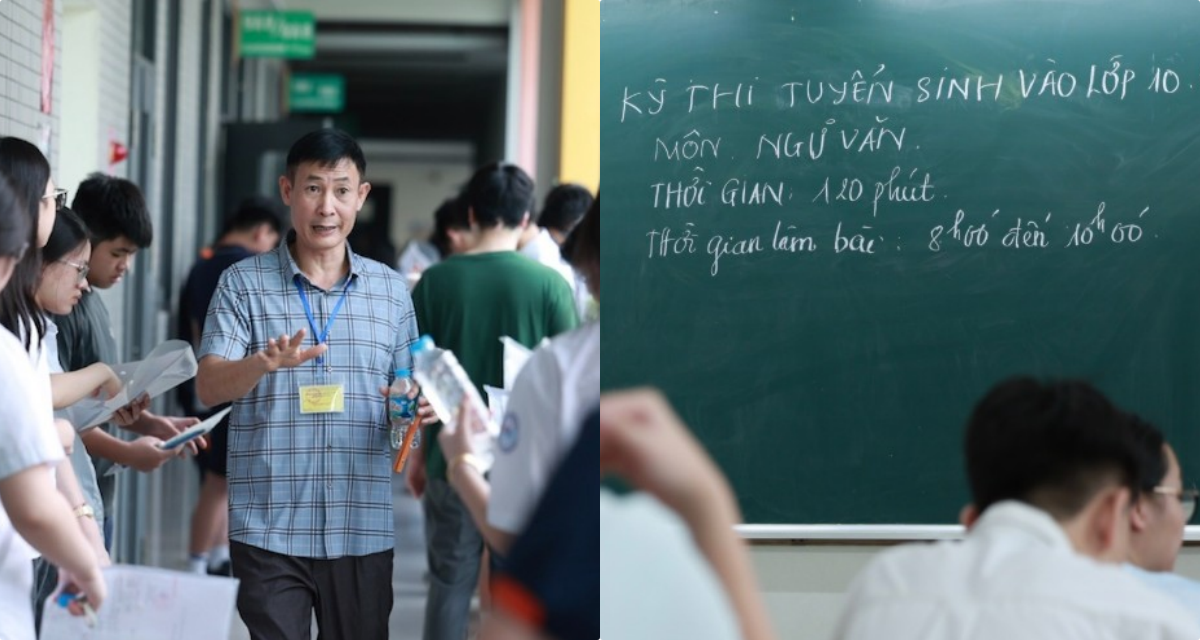 KỸ THI TUYỂN SINH VÀO LỚP 10.
MÔN. NGỮ VĂN.
THỜI GIAN: 120 phút.
Thời gian làm bài: 8h00 đến 10h00.